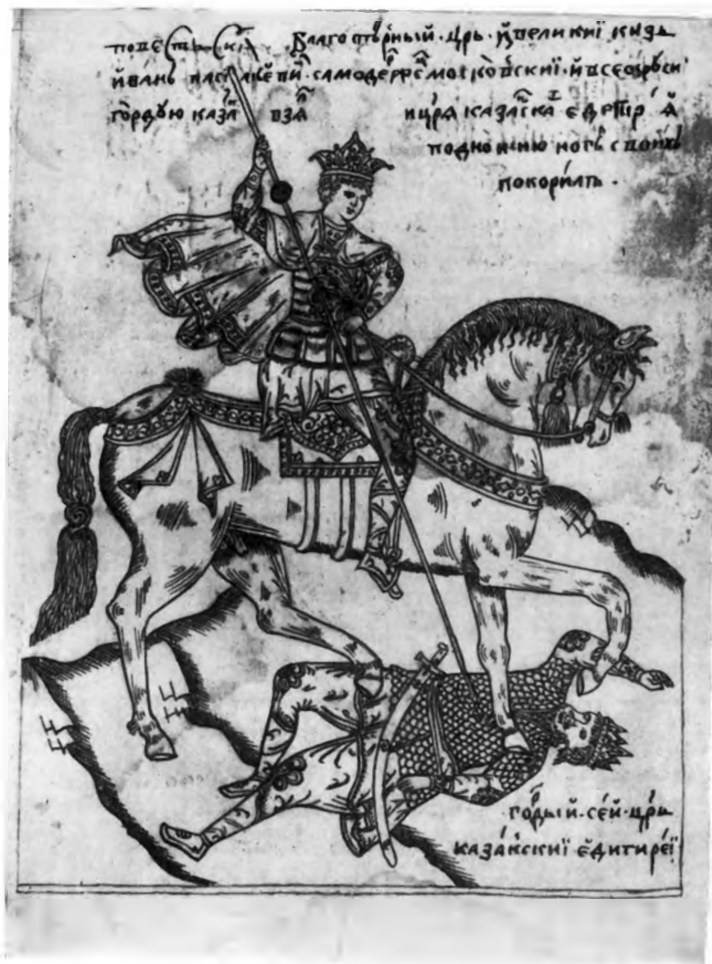 повѣсть сиѧ҆. Благовѣрный · црь · и҆ великиї кнѕь
и҆ванъ васильеви · самодерже моско́вскиї · и҆ всеѧ рѹси
го́рдую каза взя и црѧ каза́ска едегире́ѧ
под но́жию ногъ своихъ
покори́лъ .
го́рдый · сей · црь
каза́нскиї е҆дигире́ї